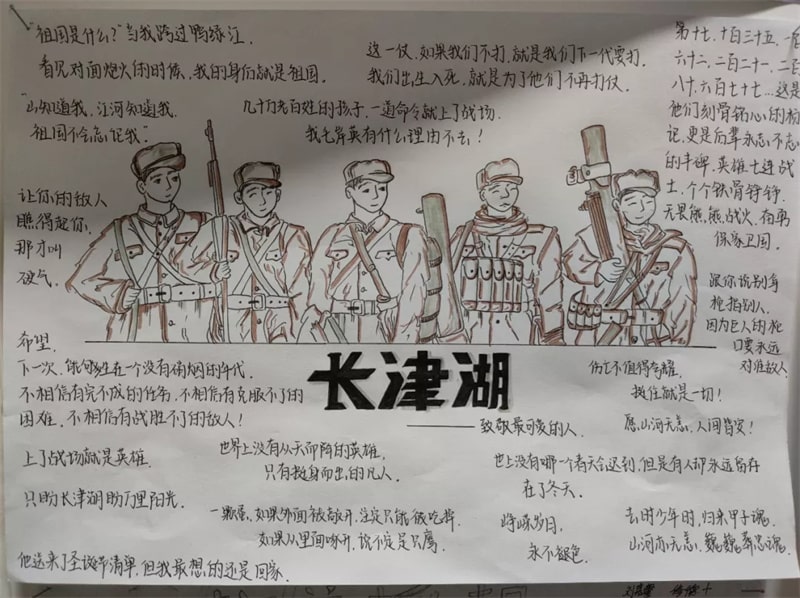 "祖国是什么?"当我跨过鸭绿江.
看见对面炮火的时候,我的身后就是祖国.
这一仗,如果我们不打,就是我们下一代要打.
我们出生入死,就是为了他们不再打仗.
第十七,十百三十五,一百
六十二,二百二十一,二百
八十,六百七十七…这是
他们刻骨铭心的标
记,更是后辈永志不忘
的丰碑.英雄七连战
士,个个铁骨铮铮,
无畏熊熊战火,奋勇
保家卫国.
"山知道我,江河知道我
祖国不会忘记我"
几十万老百姓的孩子,一道命令就上了战场
我毛岸英有什么理由不去!
让你的敌人
瞧得起你,
那才叫
硬气.
跟你说别拿
枪指别人,
因为巨人的枪
口要永远
对准敌人
希望
下一次,能够生在一个没有硝烟的年代.
不相信有完不成的任务,不相信有克服不了的
困难,不相信有战胜不了的敌人!
长津湖
——致敬最可爱的人.
伤亡不值得夸耀,
挺住就是一切!
愿山河无恙,人间皆安!
上了战场就是英雄.
只盼长津湖助万里阳光.
世界上没有从天而降的英雄,
只有挺身而出的凡人.
也上没有哪一个春天会迟到,但是有人却永远留存
在了冬天.
一颗蛋,如果外面被敲开,注定只能被吃掉.
如果从里面啄开,说不定是只鹰.
峥嵘岁月,
永不褪色.
去时少年时,归来甲子魂.
山河亦无恙,巍巍葬忠魂.
他送来了圣诞节清单,但我最想的还是回家.